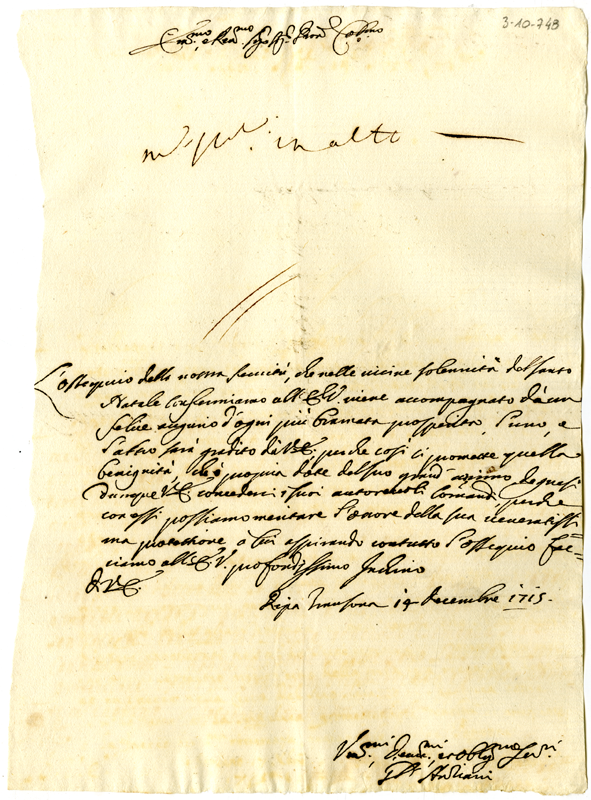 3-10-748
Em.mo e Rev.mo Sig.re Sig.r Pron. Col.mo
in alto
L'ossequio della nostra servitù, che nelle vicine solennità del Santo
Natale confermiamo all'E.V. viene accompagnato da un
felice augurio d'ogni più bramata prosperità, l'uno, e
l'altro sarà gradito da V.E. perche così ci promette quella
benignità, ch'è propria dote del suo grand'animo, degnesi
dunque V.E. concederci i suoi autorevoli comandi, perche
con essi possiamo meritare l'onore della sua veneratissi
ma protettione a cui aspirando con tutto l'ossequio fac=
ciamo all'E.V. profondissimo Inchino
D.V.E.
Ripa Transona 14 Decembre 1715.
V.mi Devot.mi et Obblig.mi Ser.ri
Gli Antiani